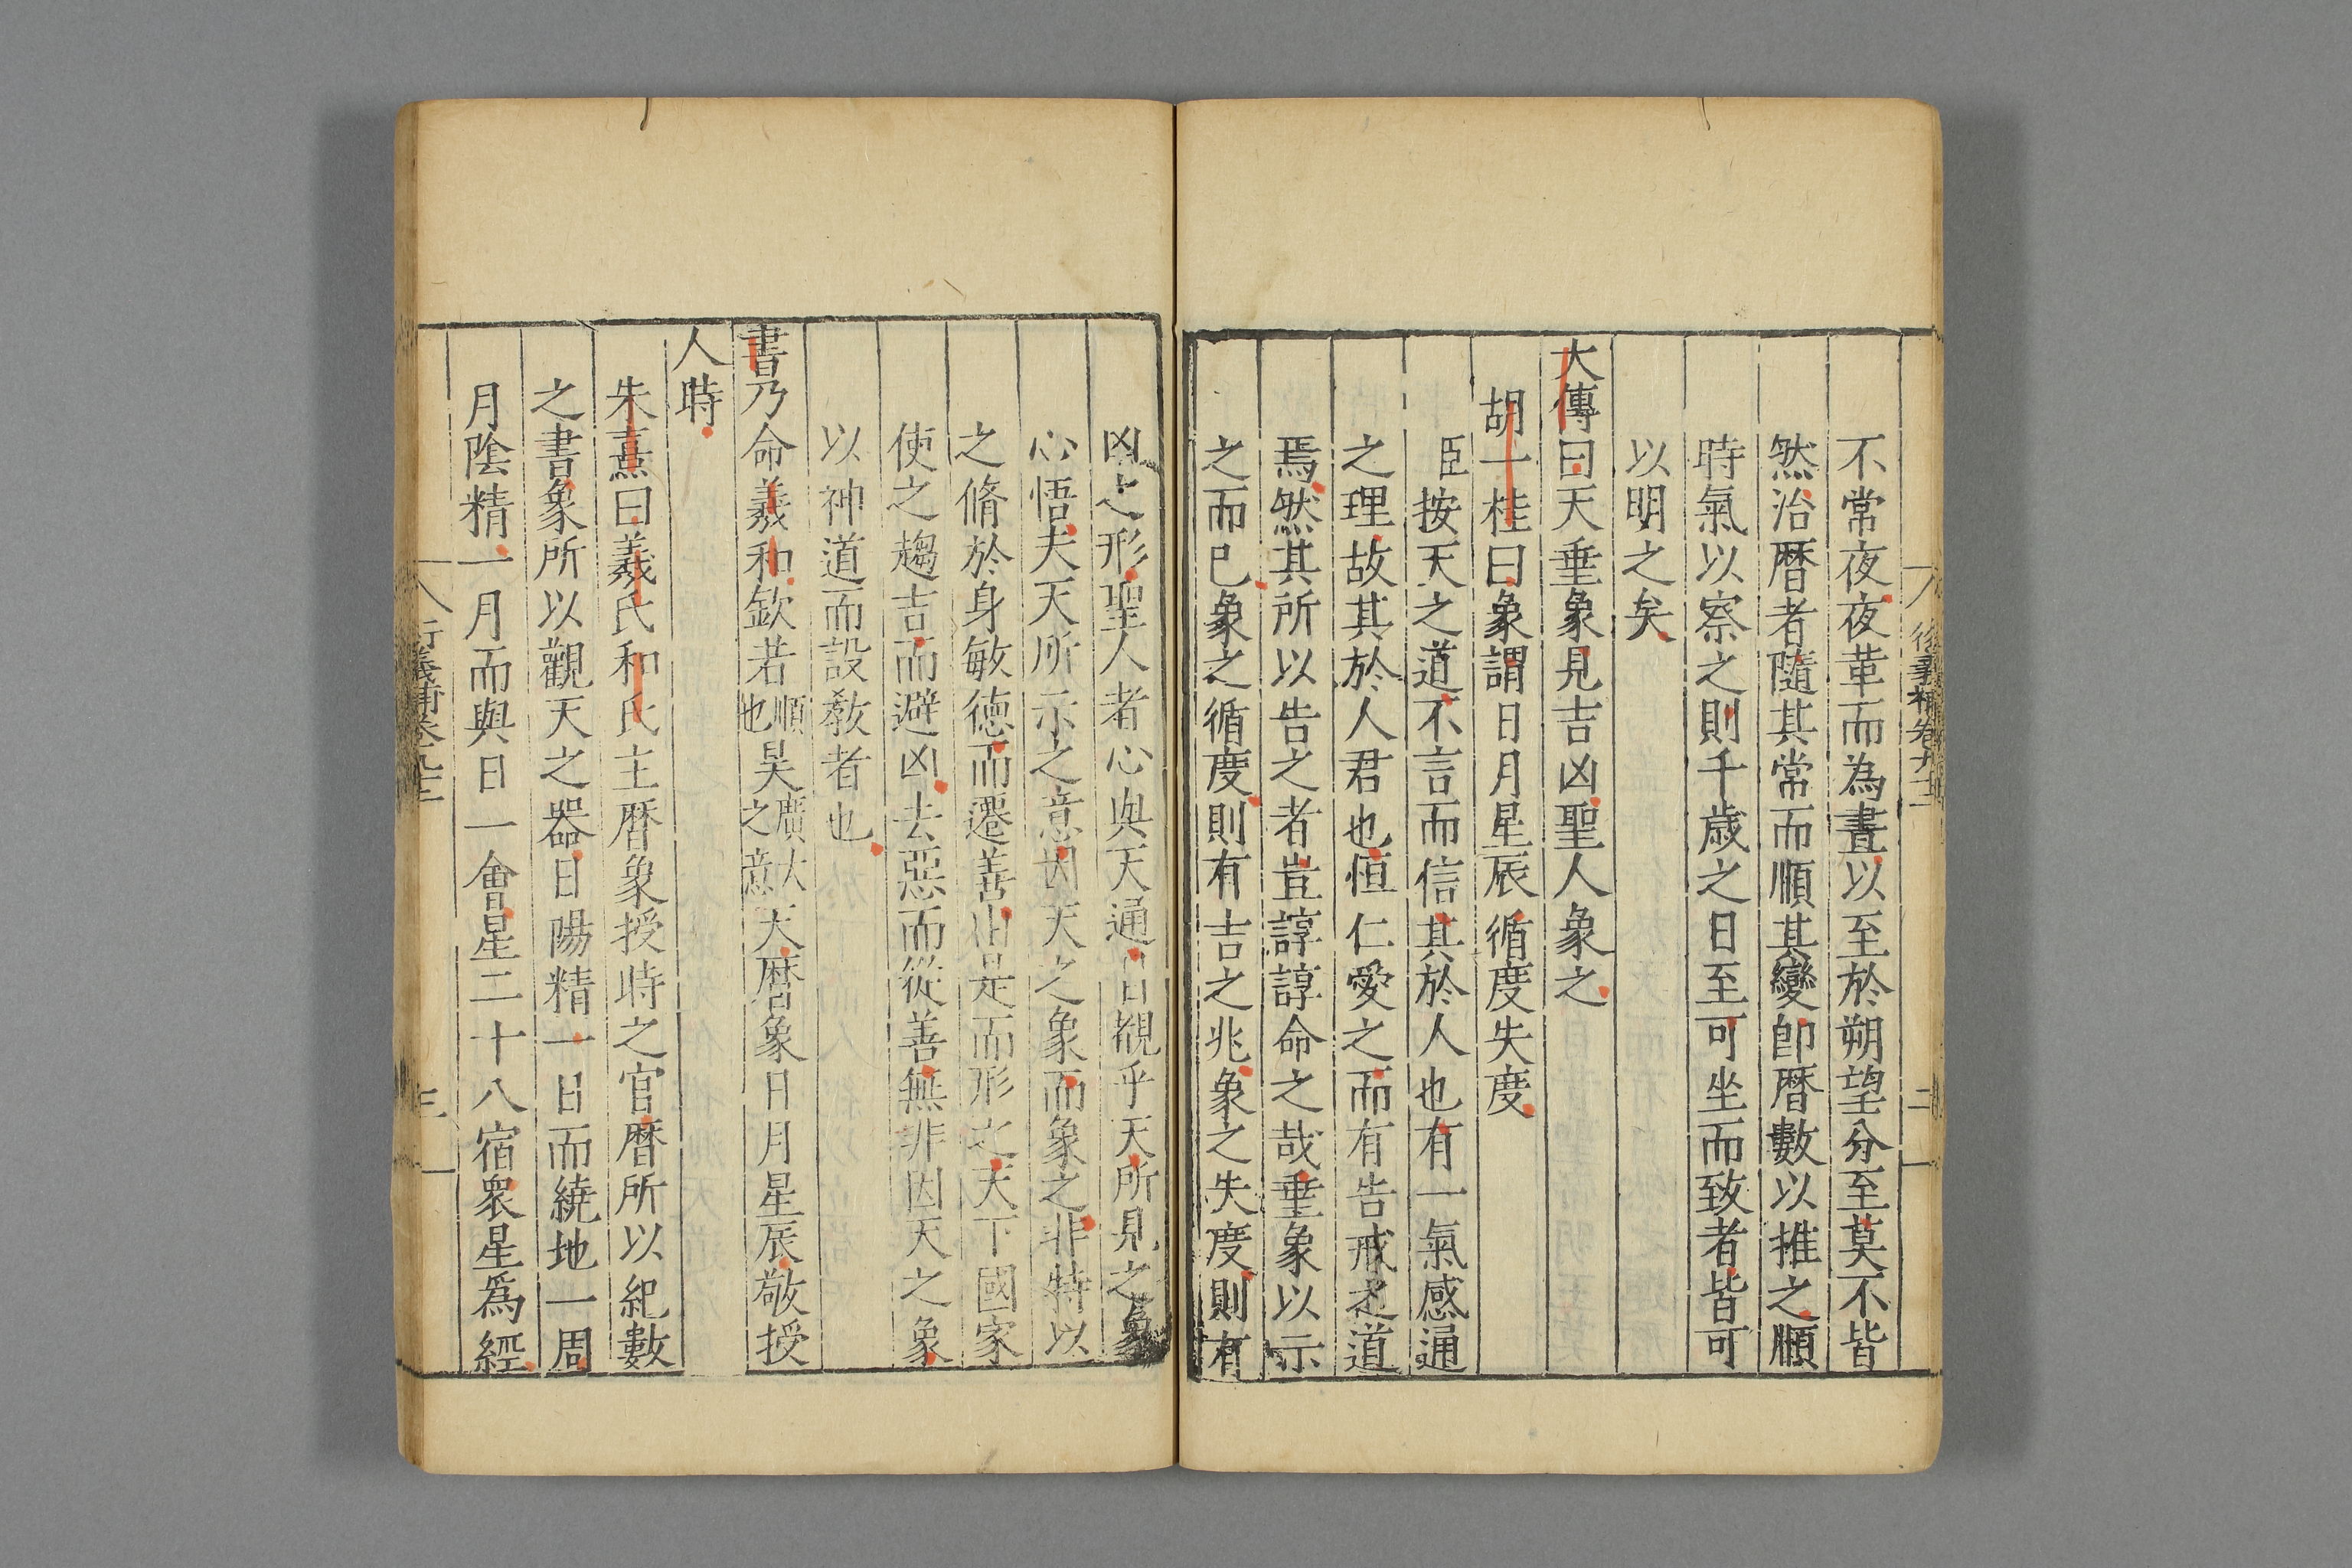 不常夜夜革而為晝以至於朔望分至莫不皆
然治曆者隨其常而順其變卽曆數以推之順
時氣以察之則千歲之日至可坐而致者皆可
以明之矣
大傳曰天垂象見吉凶聖人象之
胡一桂曰象謂日月星辰循度失度
臣按天之道不言而信其於人也有一氣感通
之理故其於人君也恒仁愛之而有告戒之道
焉然其所以告之者豈諄諄命之哉垂象以示
之而已象之循度則有吉之兆象之失度則有
凶之形聖人者心與天通日觀乎天所見之象
心悟夫天所示之意因天之象而象之非特以
之脩於身敏德而遷善由是而形之天下國家
使之趨吉而避凶去惡而從善無非因天之象
以神道而設敎者也
書乃命羲和欽若順也昊廣大之意天曆象日月星辰敬授
人時
朱熹曰羲氏和氏主曆象授時之官曆所以紀數
之書象所以觀天之器日陽精一日而繞地一周
月陰精一月而與日一會星二十八宿衆星爲經